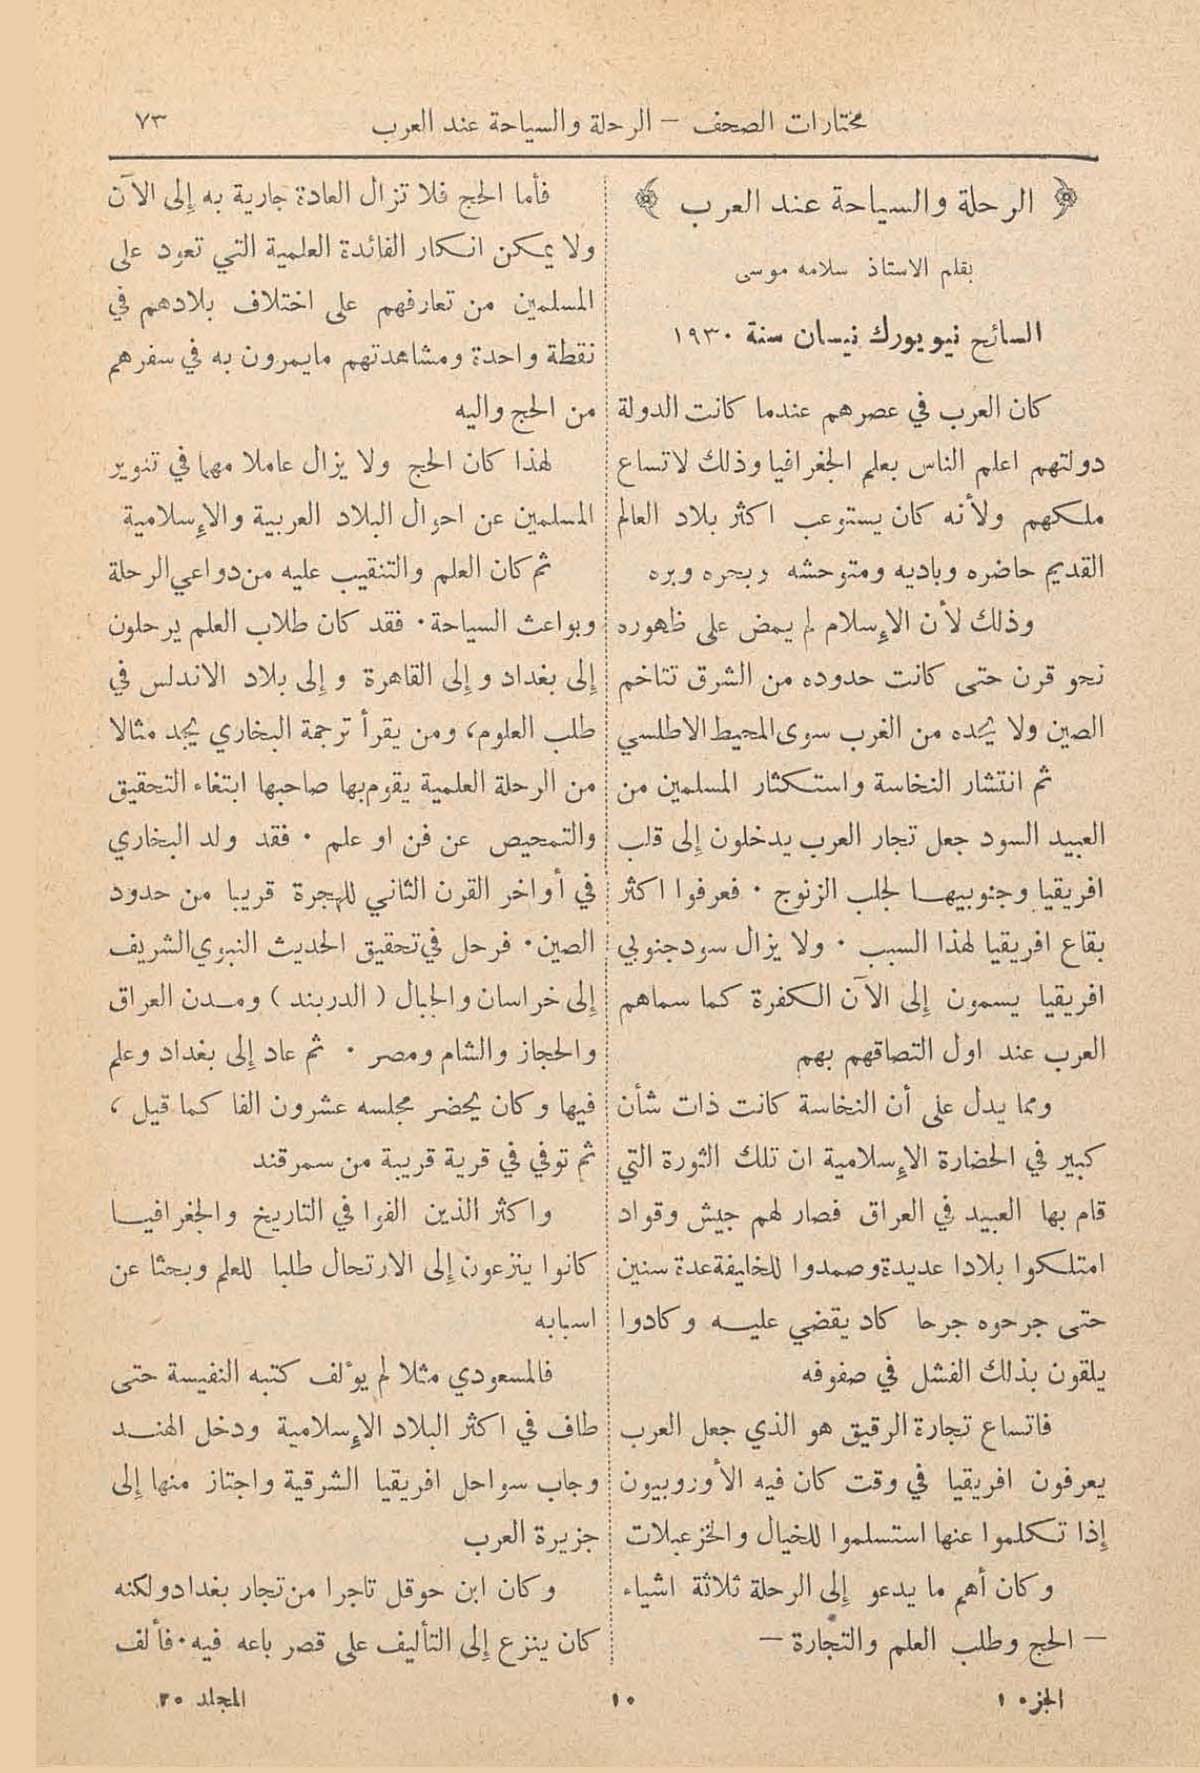 مختارات الصحف – الرحلة والسياحة عند العرب ٧٣
﴿ الرحلة والسياحة عند العرب ﴾
بقلم الاستاذ سلامه موسى
السائح نيويورك نيسان سنة ١٩٣٠
كان العرب في عصرهم عندما كانت الدولة
دولتهم اعلم الناس بعلم الجغرافيا وذلك لاتساع
ملكهم ولأنه كان يستوعب اكثر بلاد العالم
القديم حاضره وباديه ومتوحشه وبحره وبره
وذلك لأن الإسلام لم يمض على ظهوره
نحو قرن حتى كانت حدوده من الشرق تتاخم
الصين ولا يحده من الغرب سوى المحيط الاطلسي
ثم انتشار النخاسة واستكثار المسلمين من
العبيد السود جعل تجار العرب يدخلون إلى قلب
افريقيا وجنوبيها لجلب الزنوج . فعرفوا اكثر
بقاع افريقيا لهذا السبب . ولا يزال سود جنوبي
افريقيا يسمون إلى الآن الكفرة كما سماهم
العرب عند اول التصاقهم بهم
ومما يدل على أن النخاسة كانت ذات شأن
كبير في الحضارة الإسلامية ان تلك الثورة التي
قام بها العبيد في العراق فصار لهم جيش وقواد
امتلكوا بلادا عديدة وصمدوا للخليفة عدة سنين
حتى جرحوه جرحا كاد يقضي عليه وكادوا
يلقون بذلك الفشل في صفوفه
فاتساع تجارة الرقيق هو الذي جعل العرب
يعرفون افريقيا في وقت كان فيه الأوروبيون
إذا تكلموا عنها استسلموا للخيال والخزعبلات
وكان أهم ما يدعو إلى الرحلة ثلاثة اشياء
– الحج وطلب العلم والتجارة –
فأما الحج فلا تزال العادة جارية به إلى الآن
ولا يمكن انكار الفائدة العلمية التي تعود على
المسلمين من تعارفهم على اختلاف بلادهم في
نقطة واحدة ومشاهدتهم مايمرون به في سفرهم
من الحج واليه
لهذا كان الحج ولا يزال عاملا مهما في تنوير
المسلمين عن احوال البلاد العربية والإسلامية
ثم كان العلم والتنقيب عليه من دواعي الرحلة
وبواعث السياحة . فقد كان طلاب العلم يرحلون
إلى بغداد وإلى القاهرة وإلى بلاد الاندلس في
طلب العلوم، ومن يقرأ ترجمة البخاري يجد مثالا
من الرحلة العلمية يقوم بها صاحبها ابتغاء التحقيق
والتمحيص عن فن او علم . فقد ولد البخاري
في أواخر القرن الثاني للهجرة قريبا من حدود
الصين . فرحل في تحقيق الحديث النبوي الشريف
إلى خراسان والجبال ( الدربند ) ومدن العراق
والحجاز والشام ومصر . ثم عاد إلى بغداد وعلم
فيها وكان يحضر مجلسه عشرون الفا كما قيل ،
ثم توفي في قرية قريبة من سمرقند
واكثر الذين الفوا في التاريخ والجغرافيا
كانوا ينزعون إلى الارتحال طلبا للعلم وبحثا عن
اسبابه
فالمسعودي مثلا لم يؤلف كتبه النفيسة حتى
طاف في اكثر البلاد الإسلامية ودخل الهند
وجاب سواحل افريقيا الشرقية واجتاز منها إلى
جزيرة العرب
وكان ابن حوقل تاجرا من تجار بغداد ولكنه
كان ينزع إلى التأليف على قصر باعه فيه . فألف
الجزء ١ ١٠ المجلد ٢٠